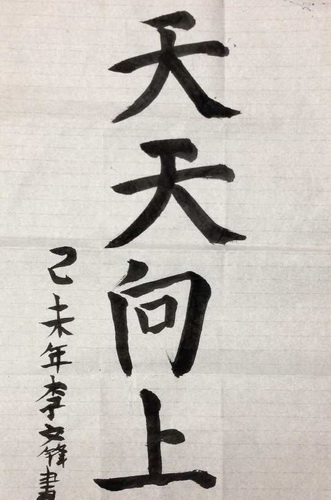 天天向上
己未年李文锋書